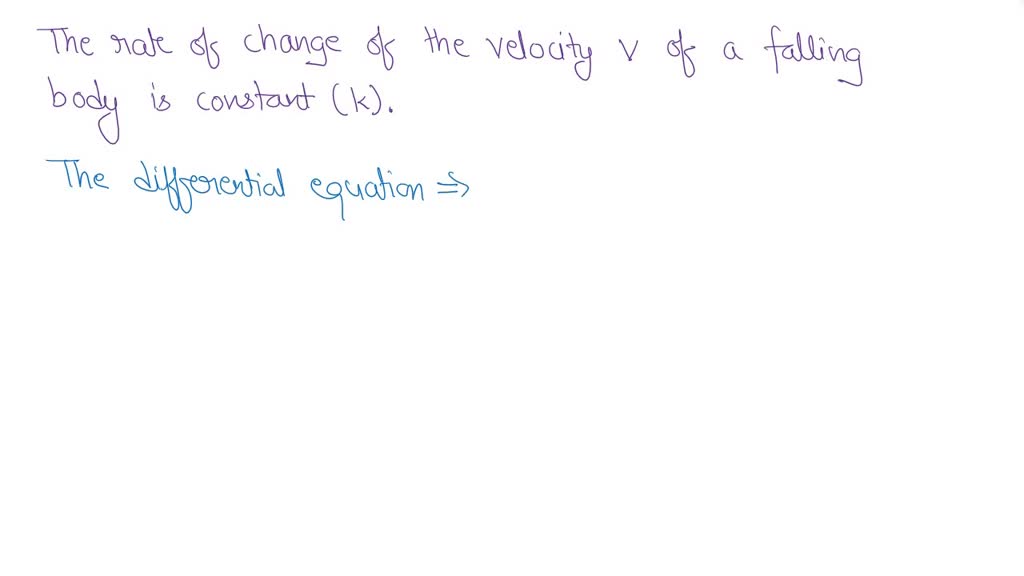 The rate of change of the velocity v of a falling
body is constant (k).
The differential equation ⇒